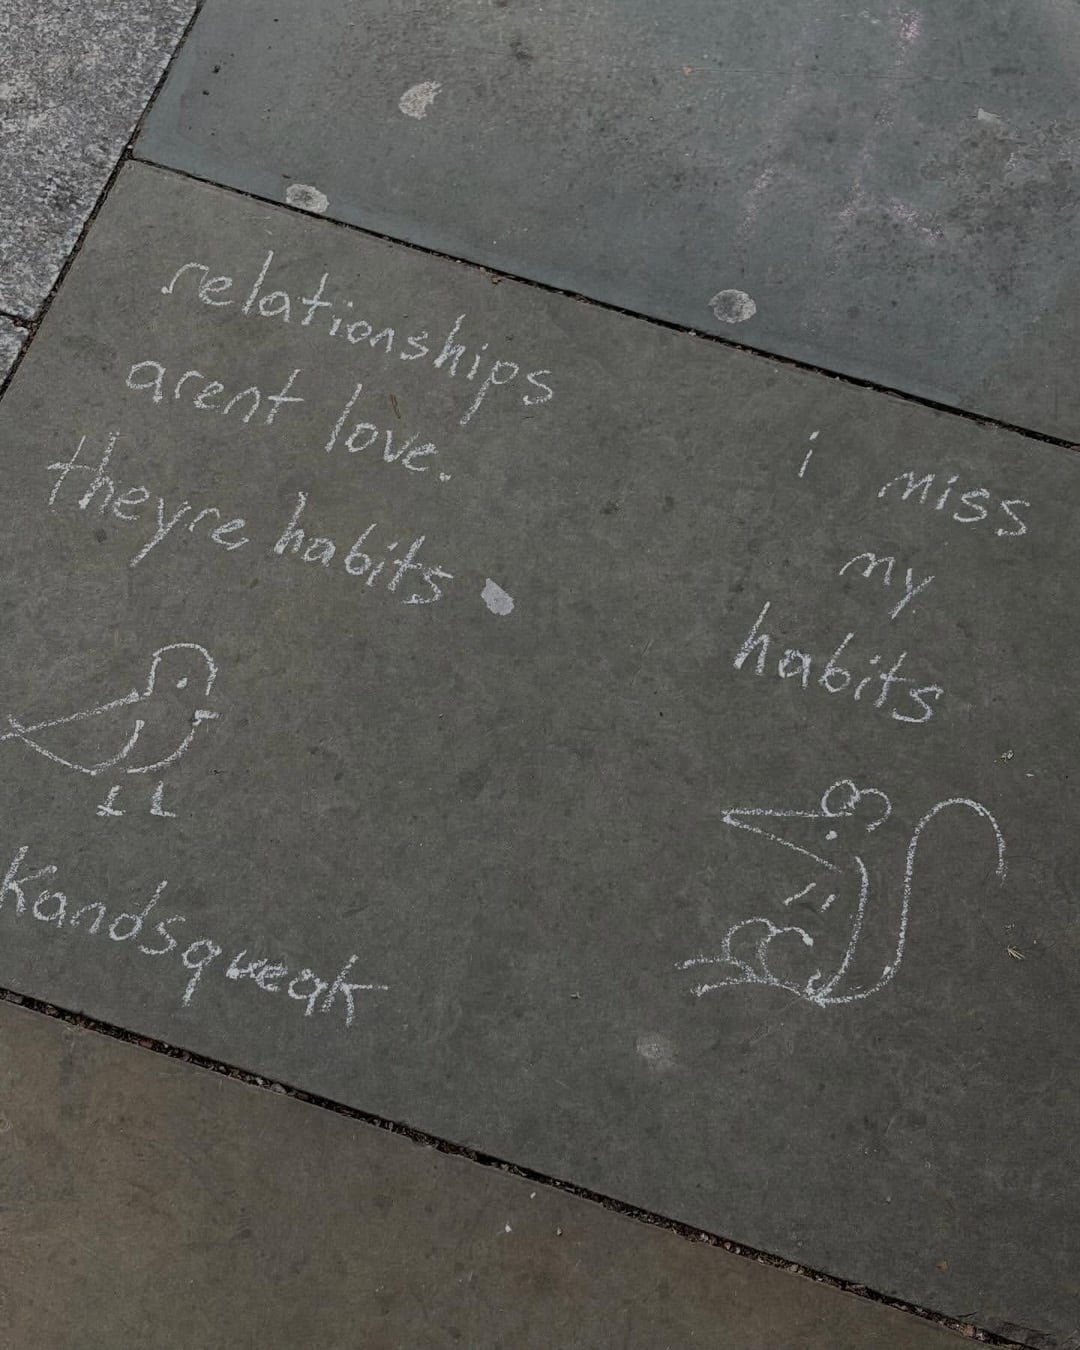 relationships
arent love.
theyre habits
i miss
my
habits
Kandsqueak